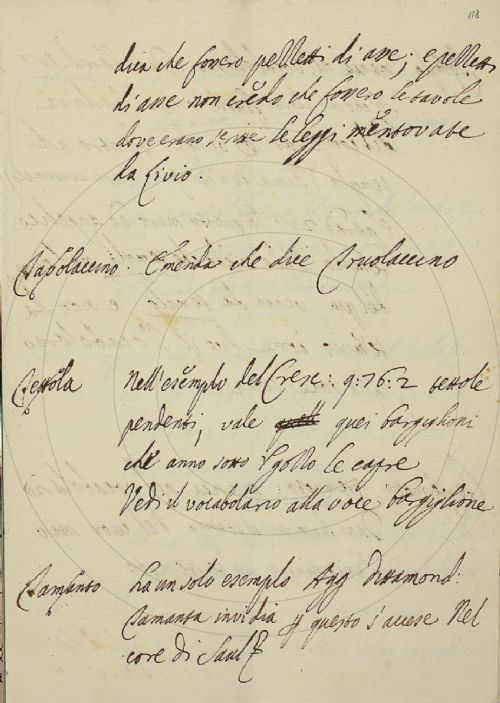 118
dica che fossero pelletti di asse; e pelletti
di asse non credo che fossero le tavole
dove erano scritte le leggi mentovate
da Livio.
Tavolaccino. Emenda che dice Truolaccino
Tettola Nell'esemplo del Cresc: 9:76:2 tettole
pendenti, vale quei bargiglioni
che anno sotto 'l gozzo le capre
Vedi il vocabolario alla voce bargiglione
Tamanto ha un solo esemplo Agg Dittamond:
Tamanta invidia questo s'accese Nel
core di Saul